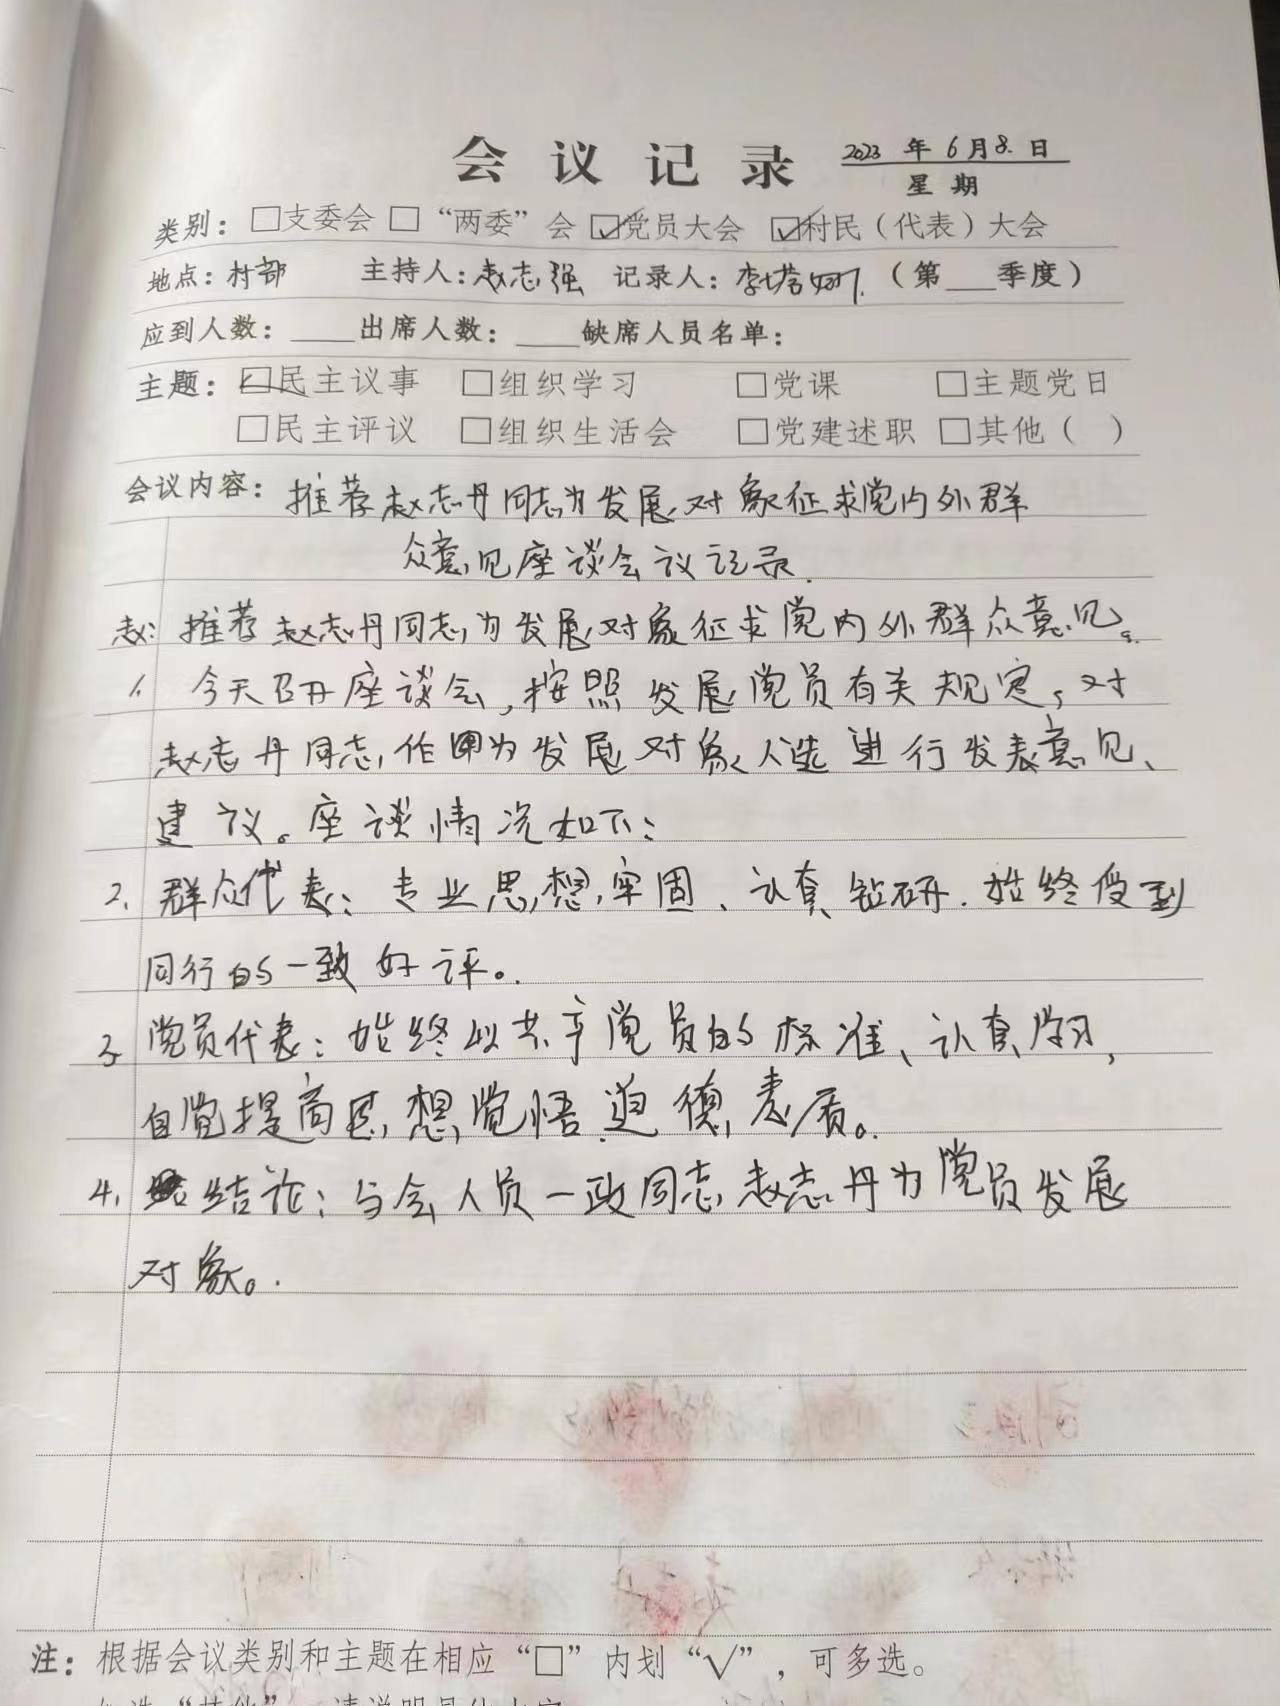 会议记录 2023年6月8.日
星期
类别：□支委会 □“两委”会 ☑党员大会 ☑村民（代表）大会
地点：村部 主持人：赵志强 记录人：李 （第___季度）
应到人数：____出席人数：____缺席人员名单：
主题：☑民主议事 □组织学习 □党课 □主题党日
□民主评议 □组织生活会 □党建述职 □其他（ ）
会议内容：推荐赵志丹同志为发展对象征求党内外群
众意见座谈会议记录.
赵：推荐赵志丹同志为发展对象征求党内外群众意见。
1、今天召开座谈会，按照发展党员有关规定，对
赵志丹同志作为发展对象人选进行发表意见、
建议。座谈情况如下：
2、群众代表：专业思想牢固、认真钻研.始终受到
同行的一致好评。
3 党员代表：始终以共产党员的标准、认真学习，
自觉提高思想觉悟道德素质。
4、结论：与会人员一致同志赵志丹为党员发展
对象。
注：根据会议类别和主题在相应“□”内划“√”，可多选。